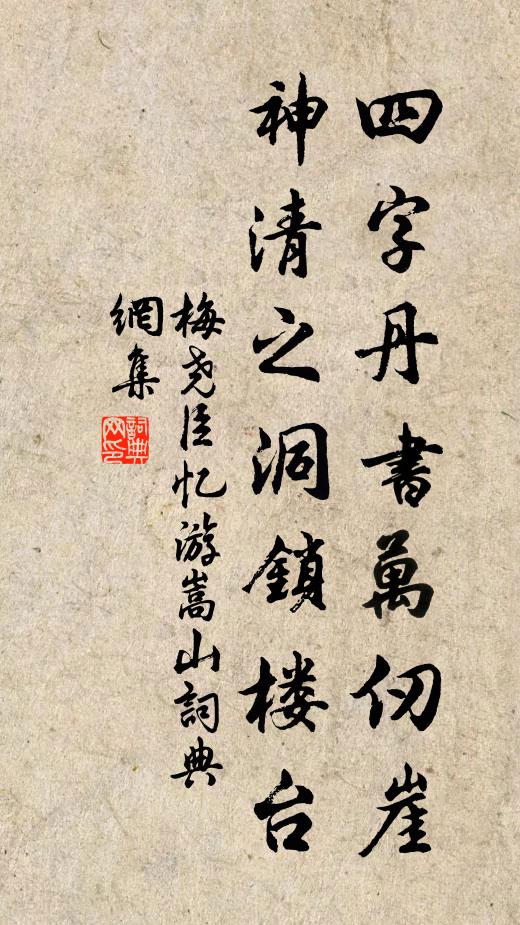 四字丹書萬仞崖
神清之洞鎖楼台
梅尧臣忆游嵩山詞典
網集
詞典
网印